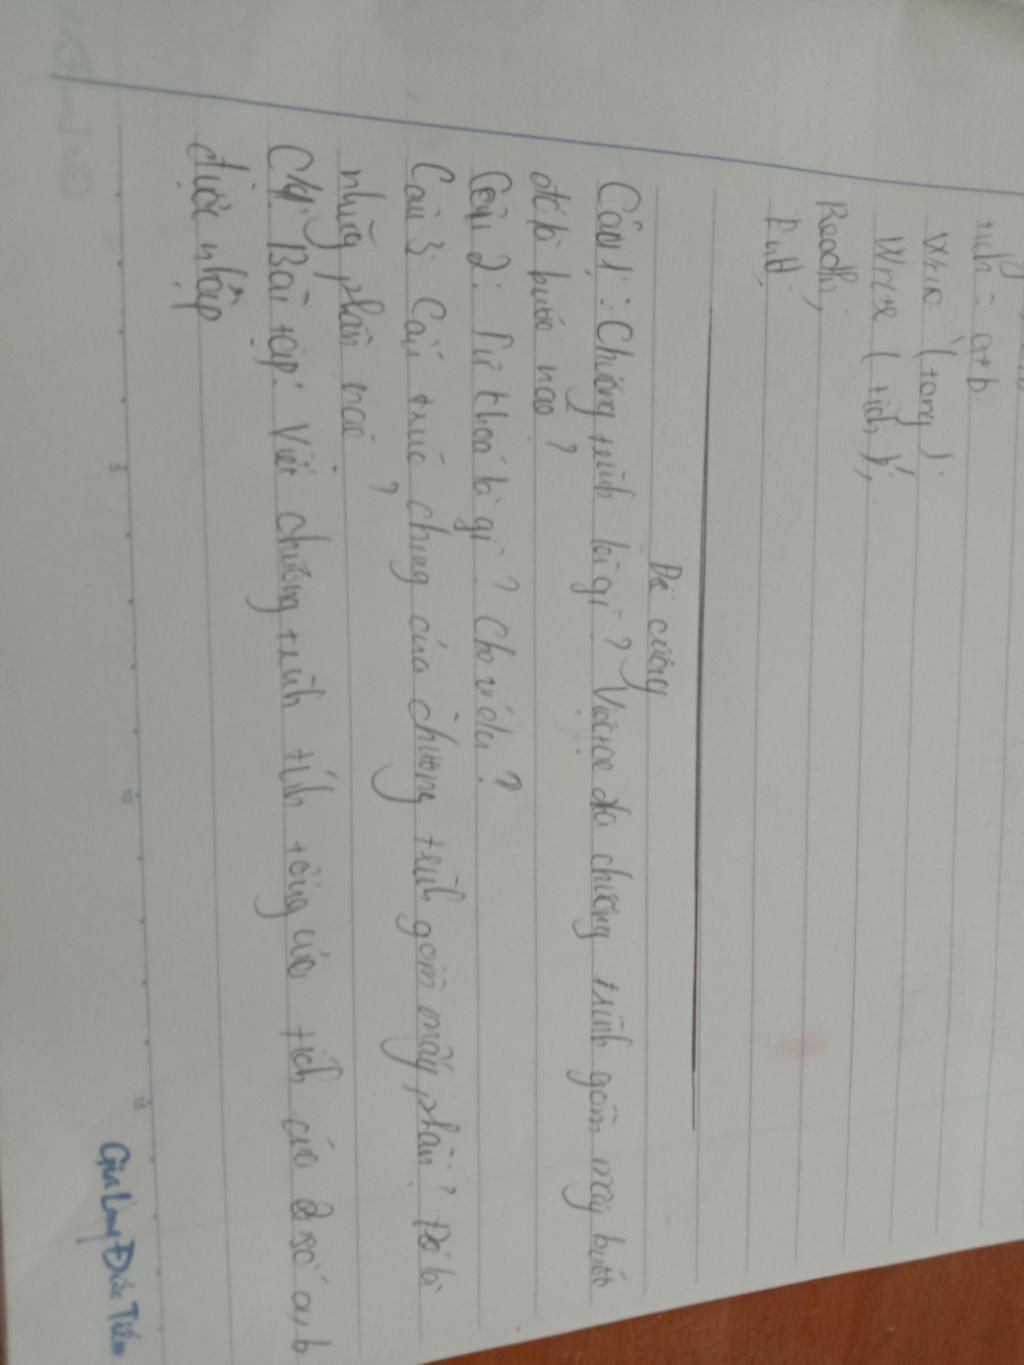 tích = a*b.
Write (tong);
Write (tich);
Readln;
End;
Đề cương
Câu 1: Chương trình là gì? Việc tạo ra chương trình gồm mấy bước
đó là bước nào?
Câu 2: Từ khoá là gì? Cho ví dụ?
Câu 3: Cấu trúc chung của chương trình gồm mấy phần? Đó là
những phần nào?
C4: Bài tập: Viết chương trình tính tổng của tích của 2 số a, b
được nhập
Gia Long Đức Tiến
5
10
15